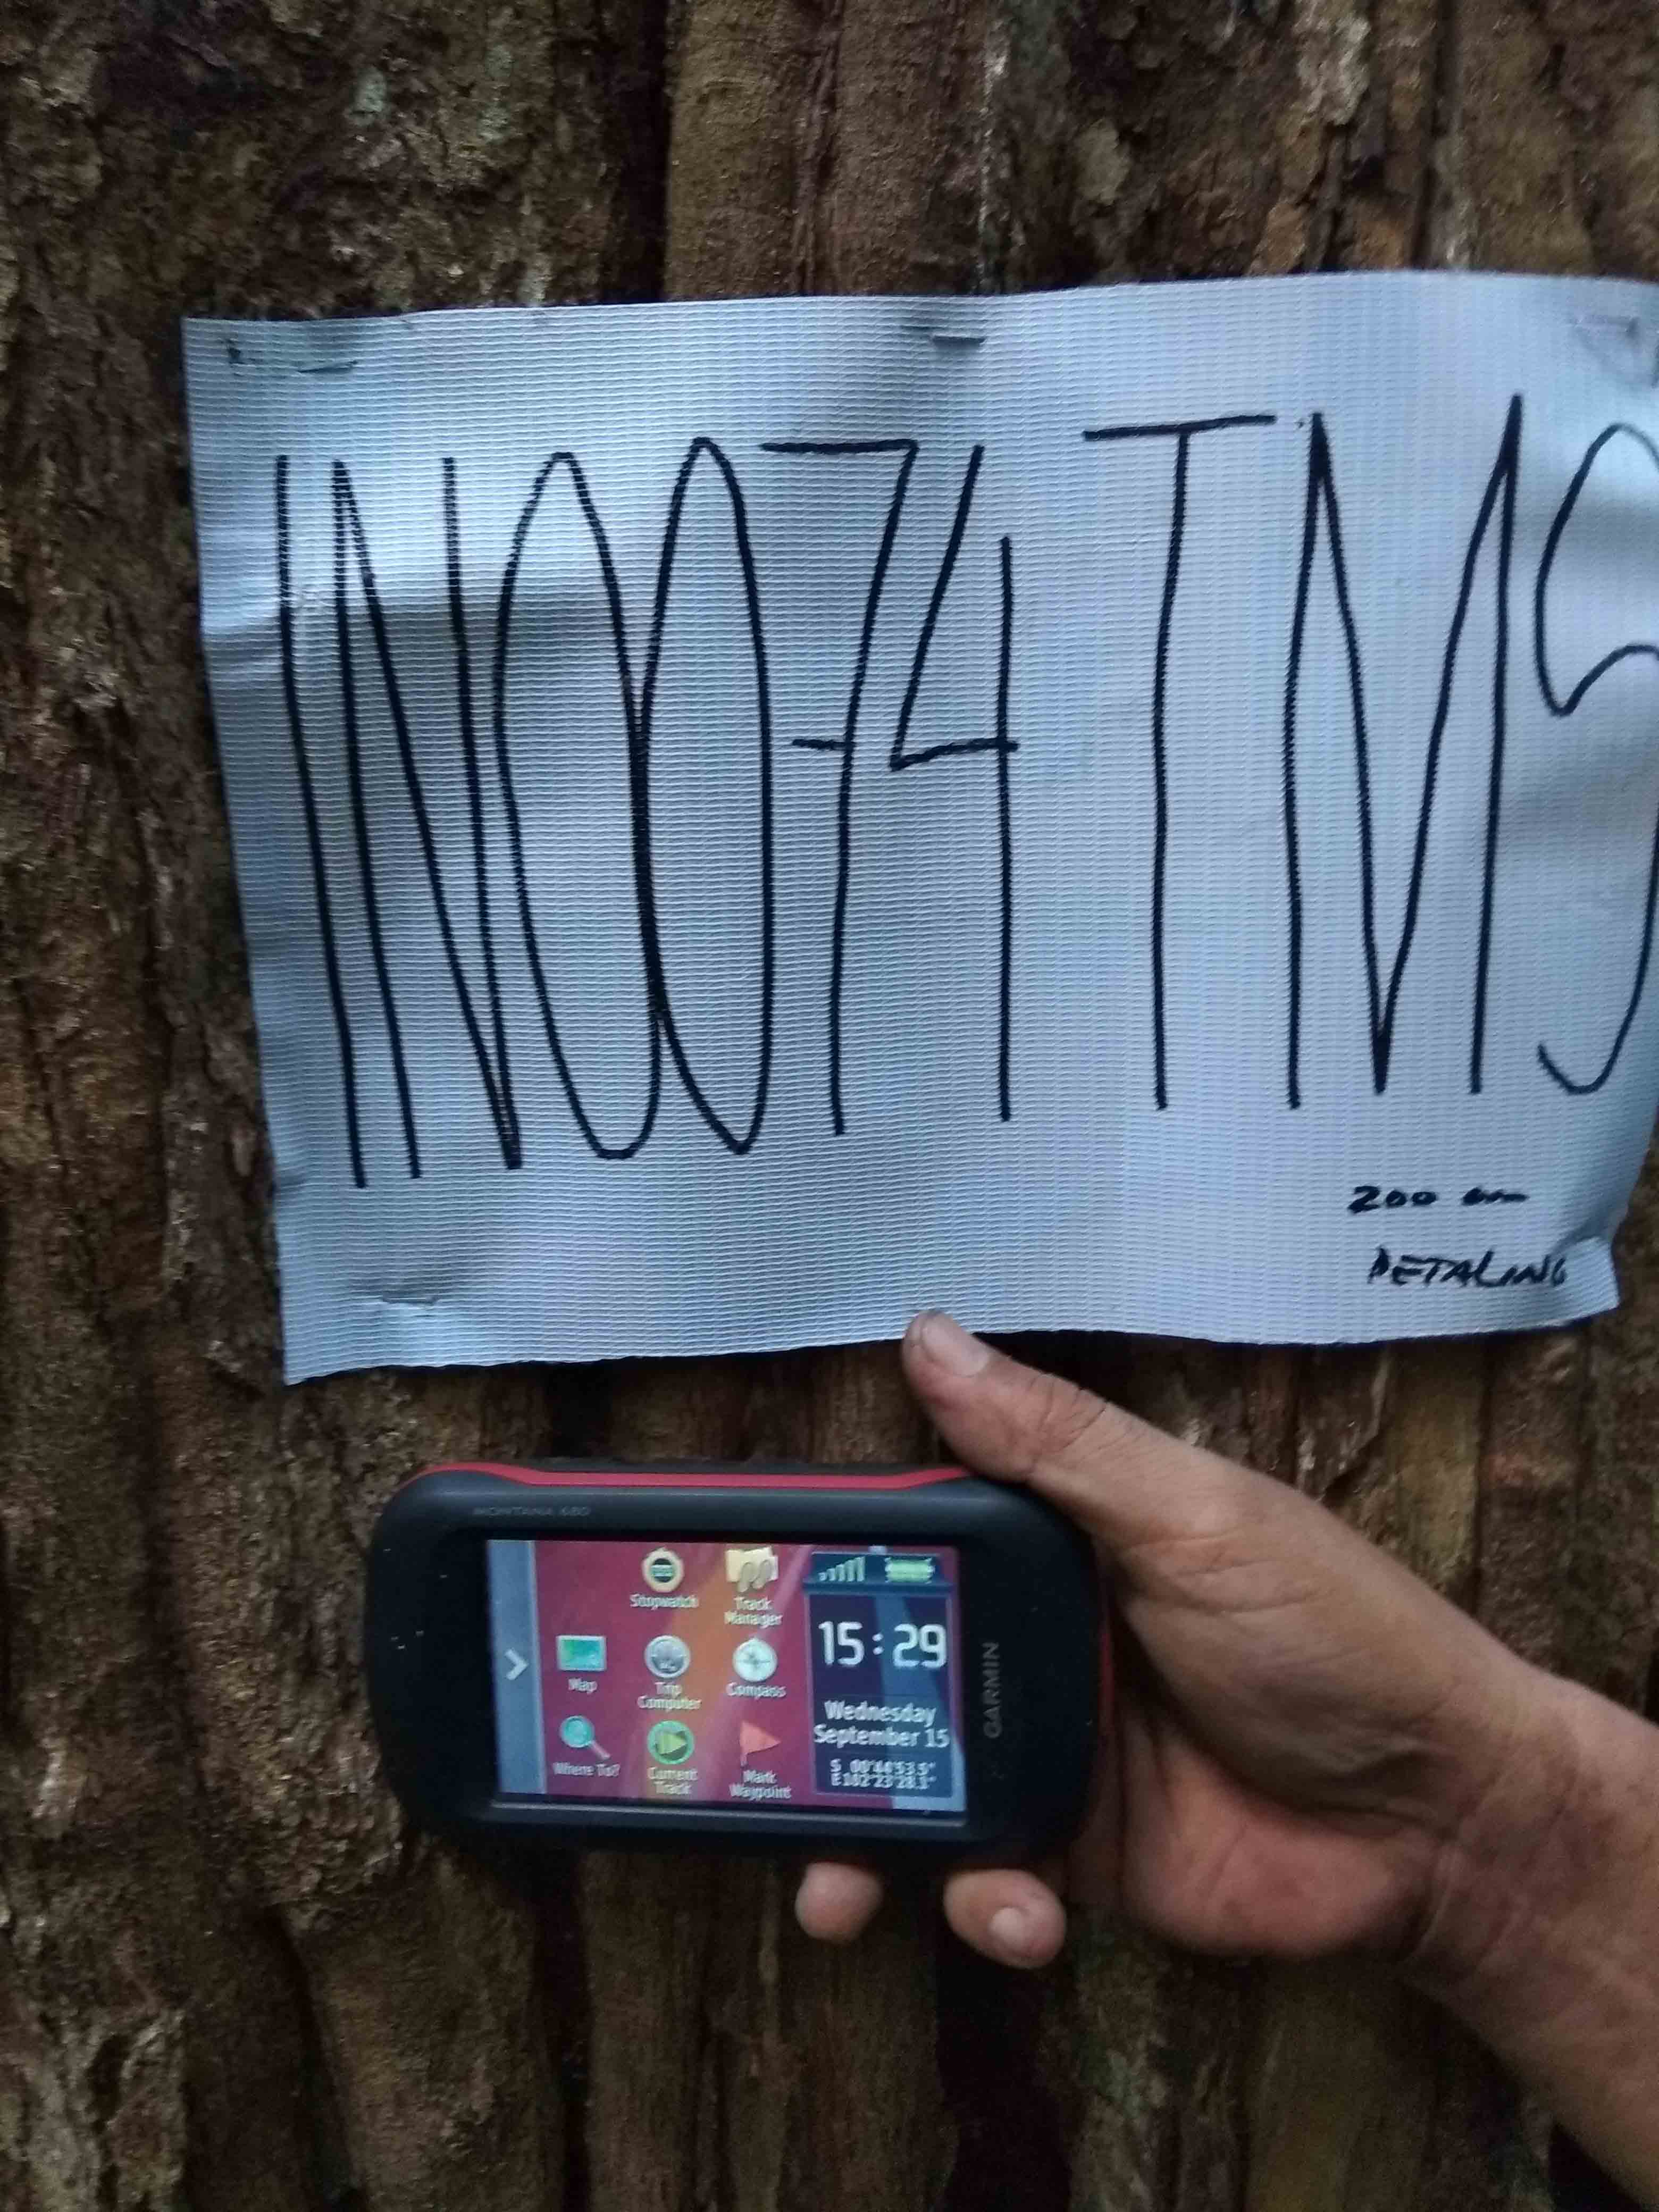 IN0074 TMS
200 cm
PETALING
MONTANA 680
Stopwatch
Track Manager
Map
Trip Computer
Compass
Where To?
Current Track
Mark Waypoint
15:29
Wednesday
September 15
S 00°44'53.5"
E102°23'28.1"
GARMIN